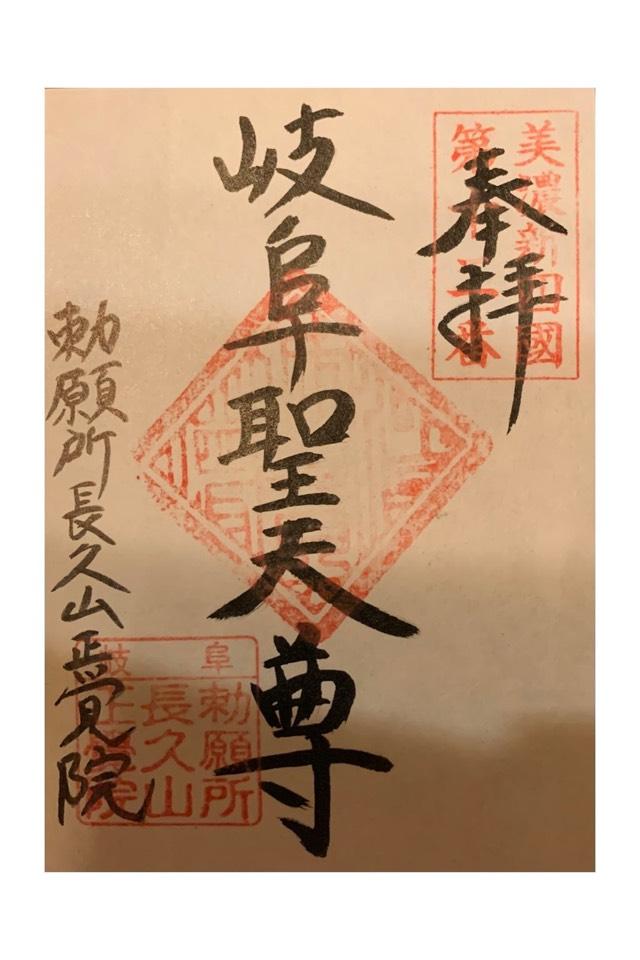 奉拝
美濃新四國
岐阜聖天尊
勅願所長久山正覚院
岐阜
勅願所
長久山
正覺院